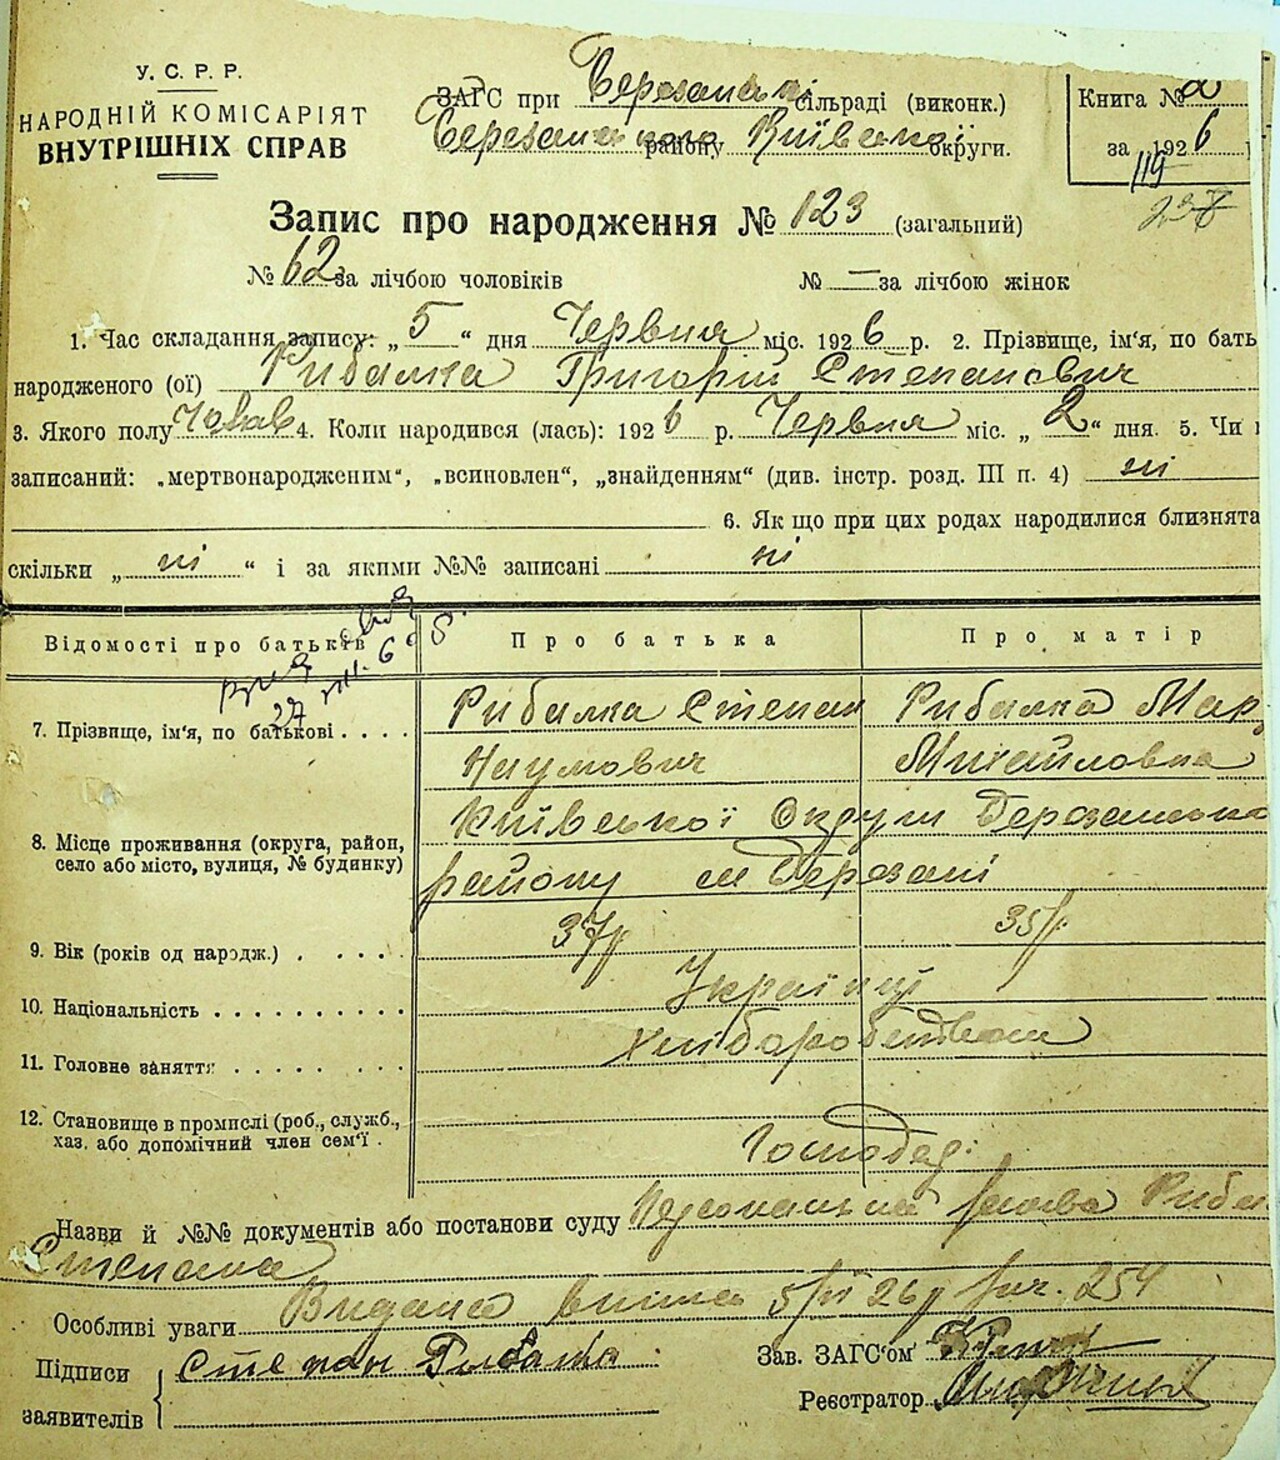 У. С. Р. Р.
НАРОДНІЙ КОМІСАРІЯТ
ВНУТРІШНІХ СПРАВ
ЗАГС при Березанській сільраді (виконк.)
Березанського району Київської округи.
Книга № 2
за 1926
119
237
Запис про народження № 123 (загальний)
№ 62 за лічбою чоловіків № — за лічбою жінок
1. Час складання запису: „5“ дня Червня міс. 1926 р. 2. Прізвище, ім'я, по бать
народженого (ої) Рибалка Григорій Степанович
3. Якого полу Чолов 4. Коли народився (лась): 1926 р. Червня міс. „2“ дня. 5. Чи
записаний: „мертвонародженим“, „всиновлен“, „знайденням“ (див. інстр. розд. III п. 4) ні
6. Як що при цих родах народилися близнята
скільки „ні“ і за якими №№ записані ні
Відомості про батьків Про батька Про матір
7. Прізвище, ім'я, по батькові . . . . Рибалка Степан Рибалка Мар
Наумович Михайловна
8. Місце проживання (округа, район, село або місто, вулиця, № будинку) Київської Округи Березанського
району м Березані
9. Вік (років од народж.) . . . . . 37р 35р.
10. Національність . . . . . . . . . . Українці
11. Головне заняття . . . . . . . . Хліборобством
12. Становище в промислі (роб., служб., хаз. або допомічний член сем'ї . Господар:
Назви й №№ документів або постанови суду Персональна заява Рибал
Степана
Особливі уваги Видана виписка 5/VI 26р 254
Підписи заявителів Степан Рибалка
Зав. ЗАГС'ом
Реєстратор